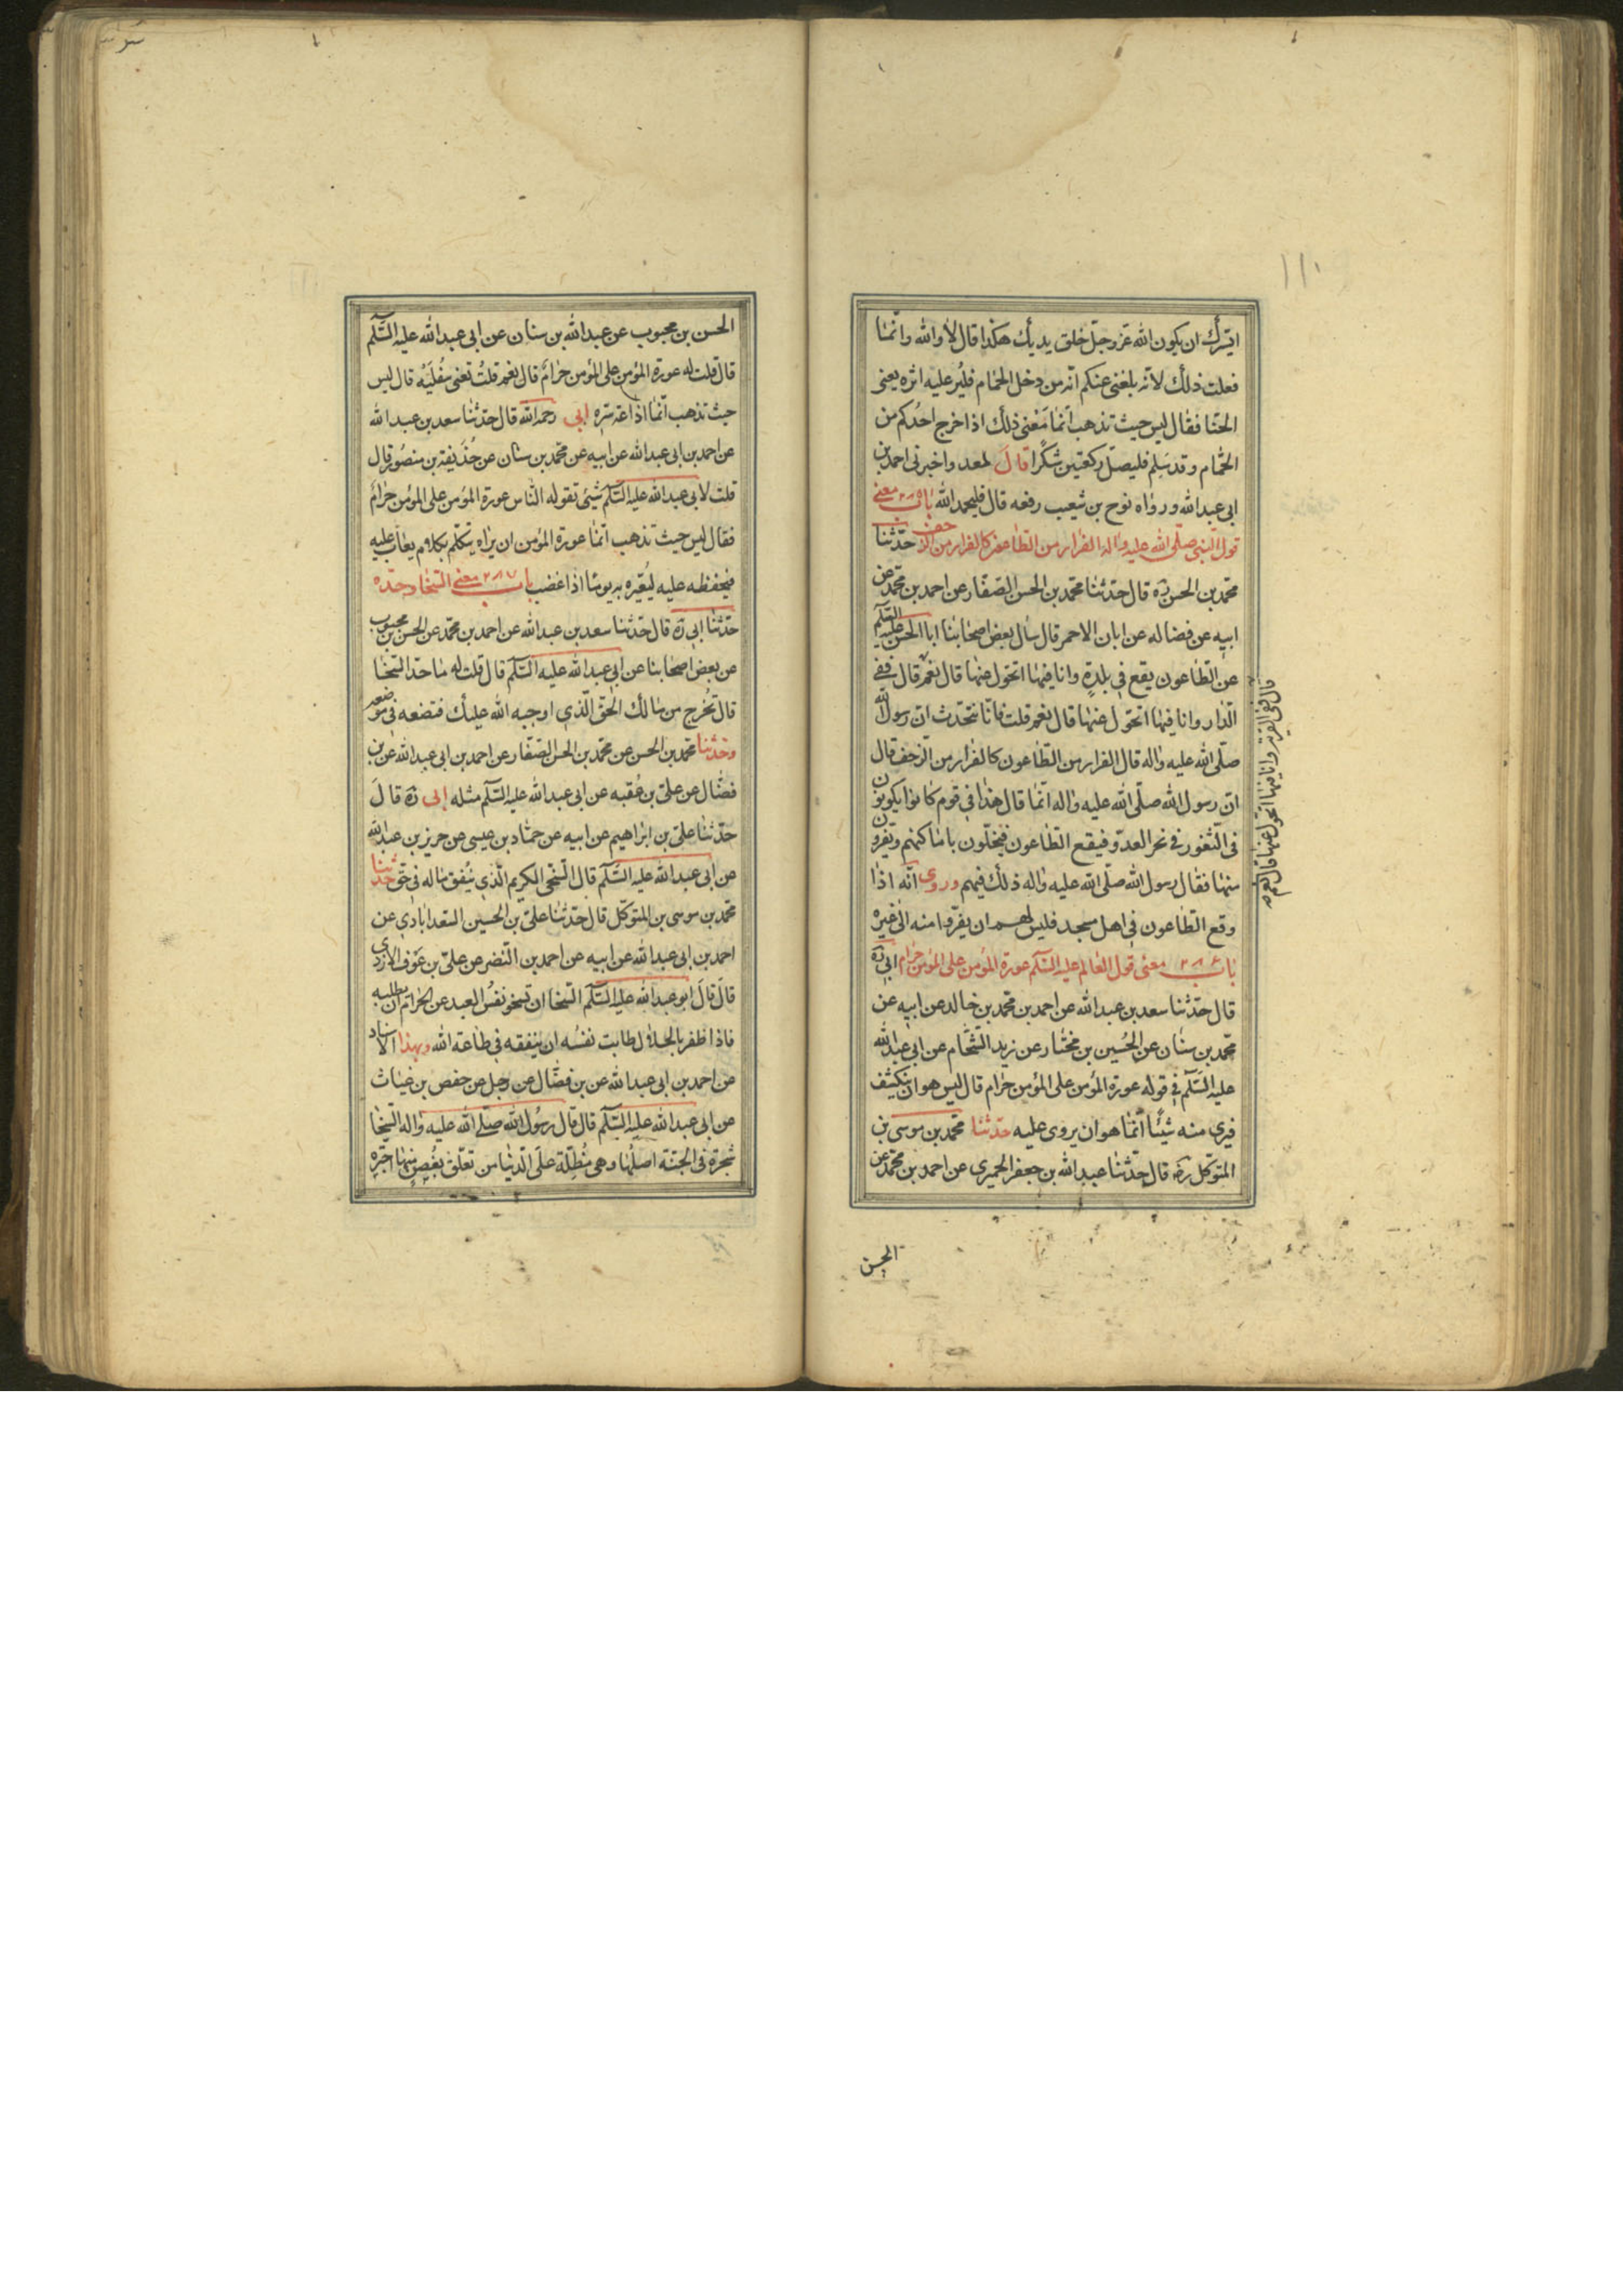 ١١١
ايسّرك ان يكون الله عزّ وجلّ خلق يديك هكذا قال لا والله وانّما
فعلت ذلك لانّه بلغنى عنكم انّه من دخل الحمّام فليُر عليه اثره يعنى
الحنّا فقال ليس حيث تذهب انّما مَعْنى ذلك اذا خرج احدُكم من
الحمّام وقد سَلِم فليصلّ ركعتين شكرًا قالَ لمعد واخبرنى احمد بن
ابى عبدالله ورواه نوح بن شعيب رفعه قال فليحمد الله باب ٢٨٥ معنى
قول النّبى صلّى الله عليه واله الفرار من الطّاعون كالفرار من الزّحف حدّثنا
محمّد بن الحسن ره قال حدّثنا محمّد بن الحسن الصّفّار عن احمد بن محمّد عن
ابيه عن فضاله عن ابان الاحمر قال سأل بعض اصحابنا ابا الحسن عليه السّلم
عن الطّاعون يقع فى بلدةٍ وانا فيها اتحوّل عنها قال نعم قال ففى
الدّار وانا فيها اتحوّل عنها قال نعم قلت فانّا نتحدّث انّ رسول الله
صلّى الله عليه واله قال الفرار من الطّاعون كالفرار من الزّحف قال
انّ رسول الله صلّى الله عليه واله انّما قال هذا فى قوم كانوا يكونون
فى الثّغور فى نحر العدوّ فيقع الطّاعون فيخلّون باماكنهم ويفرّون
منها فقال رسول الله صلّى الله عليه واله ذلك فيهم وروى انّه اذا
وقع الطّاعون فى اهل مسجد فليس لهم ان يفرّوا منه الى غيره
باب ٢٨٦ معنى قول العالم عليه السّلم عورة المؤمن على المؤمن حرام ابى ره
قال حدّثنا سعد بن عبدالله عن احمد بن محمّد بن خالد عن ابيه عن
محمّد بن سنان عن الحُسين بن مختار عن زيد الشّحّام عن ابى عبدالله
عليه السّلم فى قوله عورة المؤمن على المؤمن حرام قال ليس هو ان ينكشف
فيرى منه شيئًا انّما هو ان يروى عليه حدّثنا محمّد بن موسى بن
المتوكّل رضه قال حدّثنا عبدالله بن جعفر الحميرى عن احمد بن محمّد عن
قال ففى القرية وانا فيها اتحوّل عنها قال نعم
الحسن
الحسن بن محبوب عن عبدالله بن سنان عن ابى عبدالله عليه السّلم
قال قلت له عورة المؤمن على المؤمن حرامٌ قال نعم قلتُ تعنى سفْلَيْه قال ليس
حيث تذهب انّما اذاعة سرّه ابى رحمه الله قال حدّثنا سعد بن عبدالله
عن احمد بن ابى عبدالله عن ابيه عن محمّد بن سنان عن حُذَيفة بن منصُور قال
قلت لابى عبدالله عليه السّلم شيئ تقوله النّاس عورة المؤمن على المؤمن حرامٌ
فقال ليس حيث تذهب انّما عورة المؤمن ان يراه يتكلّم بكلام يعاب عليه
فيحفظه عليه ليُعَيّره به يومًا اذا غضب باب ٢٨٧ معنى السّخا وحدّه
حدّثنا ابى ره قال حدّثنا سعد بن عبدالله عن احمد بن محمّد عن الحسن بن محبوب
عن بعض اصحابنا عن ابى عبدالله عليه السّلم قال قلت له ما حدّ السّخا
قال تخرج من مالك الحقّ الّذى اوجبه الله عليك فتضعه فى موضعه
وحدّثنا محمّد بن الحسن عن محمّد بن الحسن الصّفّار عن احمد بن ابى عبدالله عن بن
فضّال عن علىّ بن عُقبه عن ابى عبدالله عليه السّلم مثله ابى ره قالَ
حدّثنا علىّ بن ابراهيم عن ابيه عن حمّاد بن عيسى عن حريز بن عبدالله
عن ابى عبدالله عليه السّلم قال السّخىّ الكريم الّذى يُنفق ماله فى حقّ حدّثنا
محمّد بن موسى بن المتوكّل قال حدّثنا علىّ بن الحُسين السّعداباذى عن
احمد بن ابى عبدالله عن ابيه عن احمد بن النّضر عن علىّ بن عَوف الازدى
قالَ قالَ ابو عبدالله عليه السّلم السّخا ان تسخو نفسُ العبد عن الحرام ان يطلبه
فاذا ظفر بالحلال طابت نفسُه ان ينفقه فى طاعة الله وبهذا الاسناد
عن احمد بن ابى عبدالله عن بن فضّال عن رجل عن حفص بن غياث
عن ابى عبدالله عليه السّلم قال قال رسُول الله صلّى الله عليه واله السّخا
شجرة فى الجنّة اصلُها وهى مُظِلّة على الدّنيا من تعلّق بغُصنٍ منها اجترّه